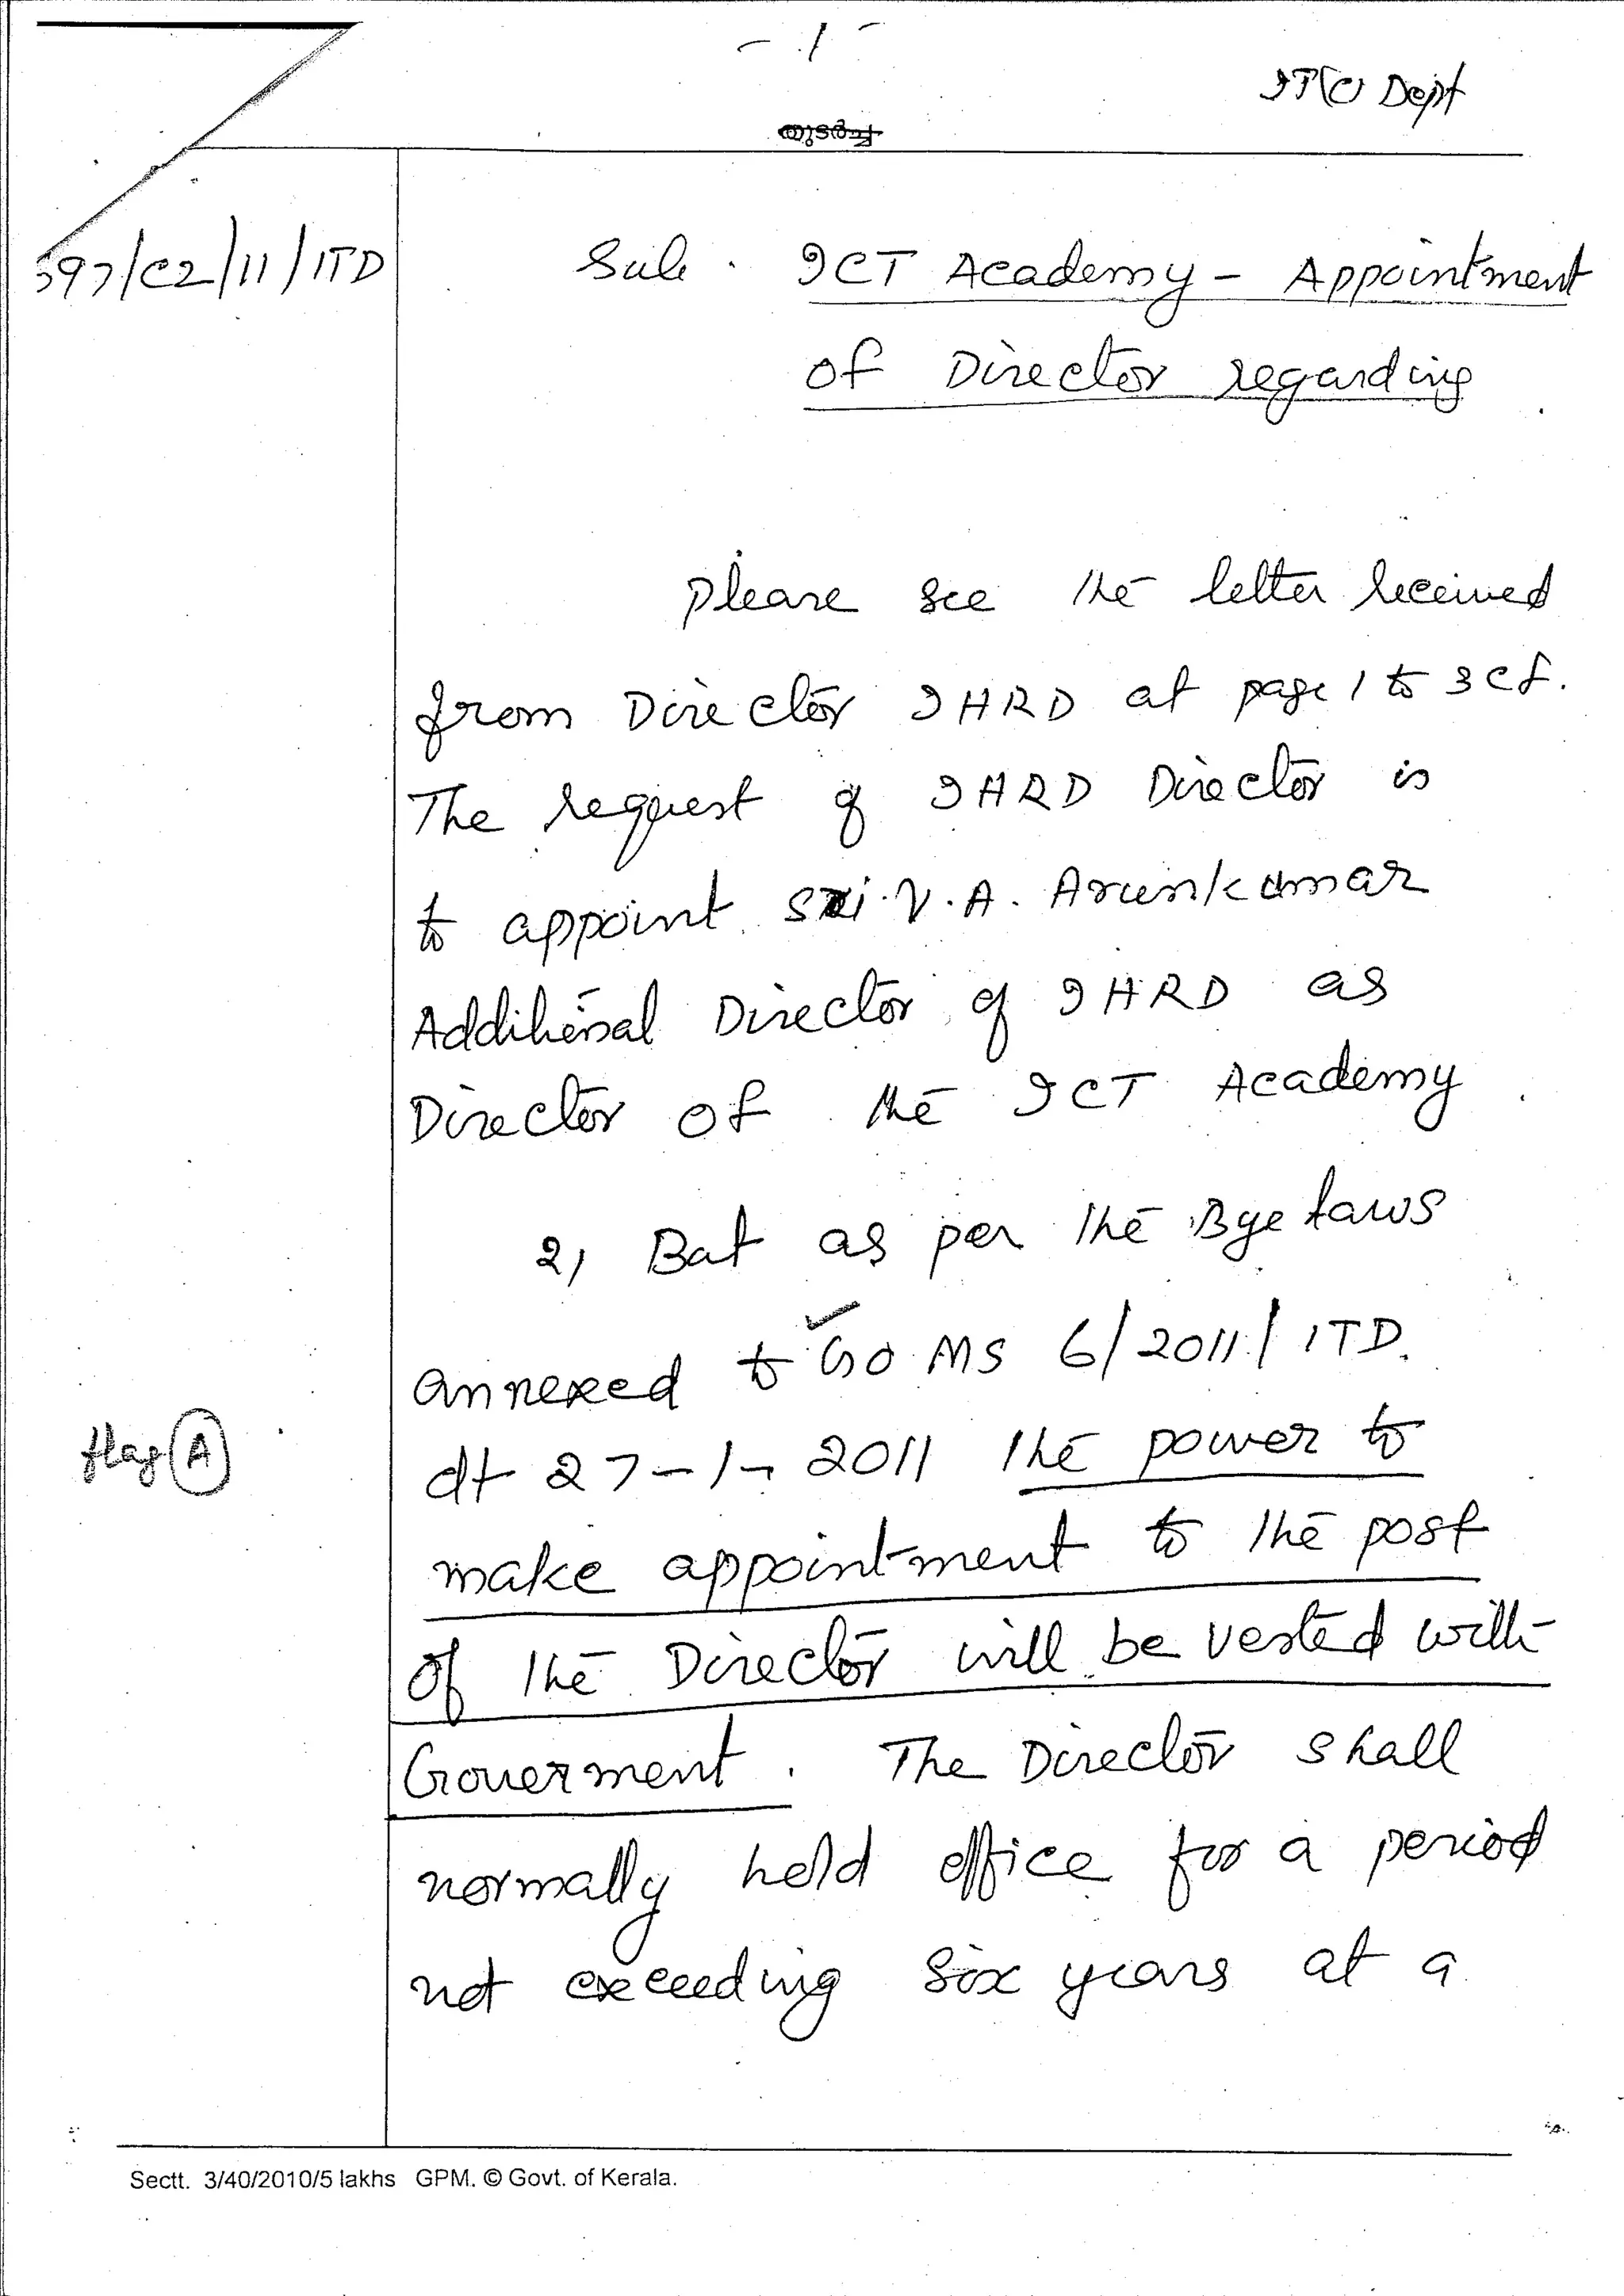 - 1 -
IT(C) Dept
തുടർച്ച
597/C2/11/ITD
Sub. ICT Academy - Appointment
of Director regarding
Please see the letter received
from Director IHRD at page 1 to 3 cf.
The request of IHRD Director is
to appoint Sri. V. A. Arunkumar
Additional Director of IHRD as
Director of the ICT Academy.
2) But as per the Bye laws
annexed to GO MS 6/2011/ITD.
flag (A)
dt 27-1-2011 the power to
make appointment to the post
of the Director will be vested with
Goverment. The Director shall
normally hold office for a period
not exceeding six years at a
Sectt. 3/40/2010/5 lakhs GPM. © Govt. of Kerala.